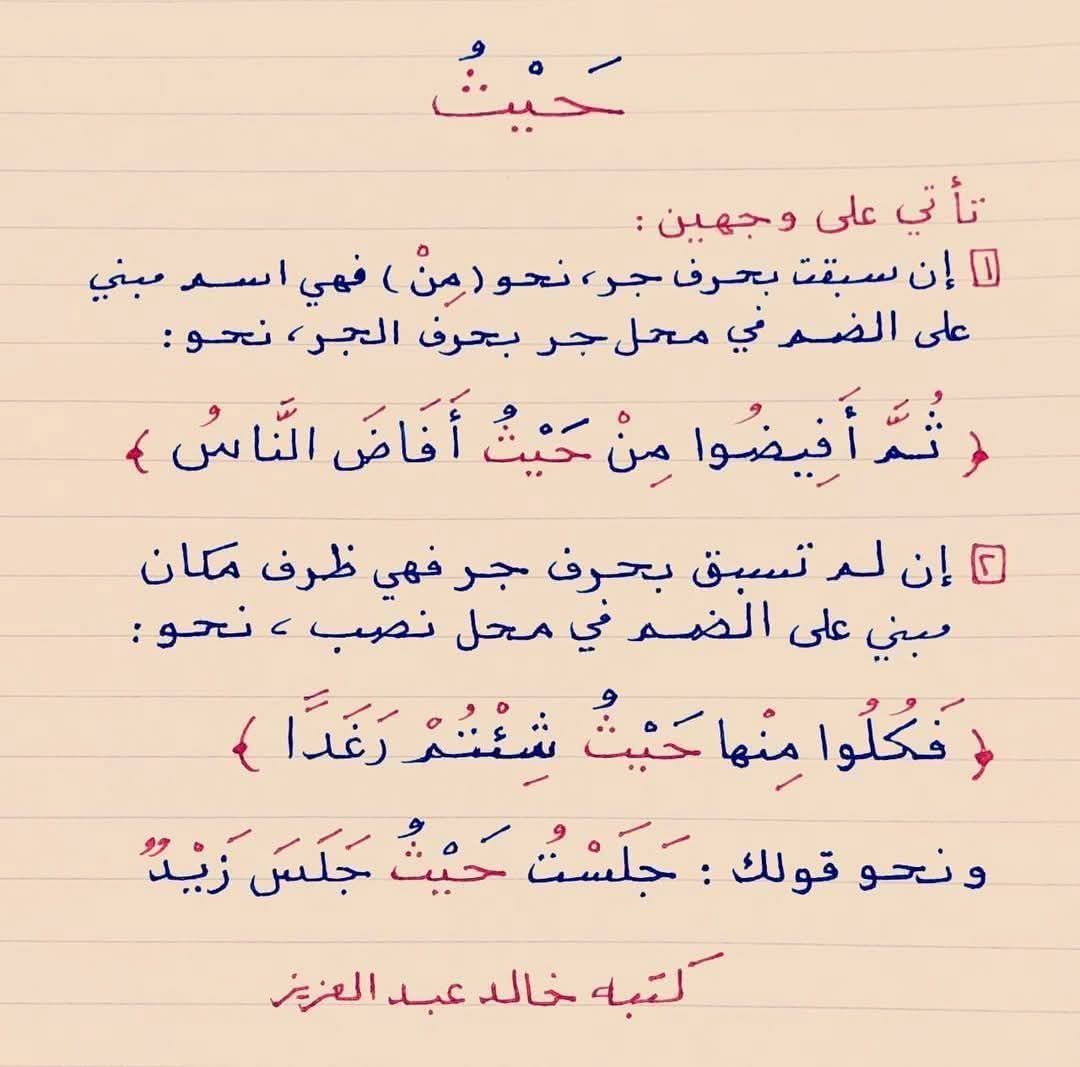 حَيْثُ
تأتي على وجهين :
١ إن سبقت بحرف جر، نحو (مِنْ) فهي اسم مبني
على الضم في محل جر بحرف الجر، نحو :
﴿ ثُمَّ أَفِيضُوا مِنْ حَيْثُ أَفَاضَ النَّاسُ ﴾
٢ إن لم تسبق بحرف جر فهي ظرف مكان
مبني على الضم في محل نصب ، نحو :
﴿ فَكُلُوا مِنْها حَيْثُ شِئْتُمْ رَغَدًا ﴾
ونحو قولك : جَلَسْتُ حَيْثُ جَلَسَ زَيْدٌ
كتبه خالد عبد العزيز